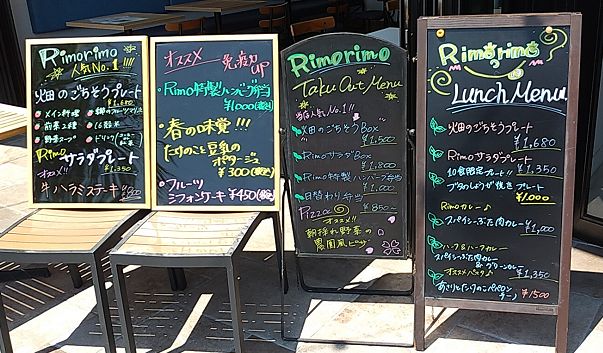 Rimorimo
人気No.1!!!
畑のごちそうプレート
¥1,680
メイン料理
前菜2種
野菜スープ
16穀米
Rimo
サラダプレート
オススメ!!
¥1,350
牛ハラミステーキ
¥800
オススメ
免疫力UP
Rimo特製ハンバーグ弁当
¥1000(税込)
春の味覚!!!
たけのこと豆乳の
ポタージュ
¥300(税込)
フルーツ
シフォンケーキ ¥450(税込)
Rimorimo
Take Out Menu
当店人気No.1!!
畑のごちそうBox
¥1,500
RimoサラダBox
¥1,800
Rimo特製ハンバーグ弁当
¥1,000
日替わり弁当
¥850~
Pizza
オススメ!!
朝採れ野菜の
農園風ピザ
Rimorimo
Lunch Menu
畑のごちそうプレート
¥1,680
Rimoサラダプレート
¥1,350
10食限定プレート!!
ブタのしょうが焼きプレート
¥1,000
Rimoカレー♪
スパイシーぶた肉カレー
¥1,000
ハーフ&ハーフカレー
スパイシーぶた肉カレー
&グリーンカレー
¥1,350
オススメパスタ♪
あさりとたけのこペペロン
チーノ
¥1500